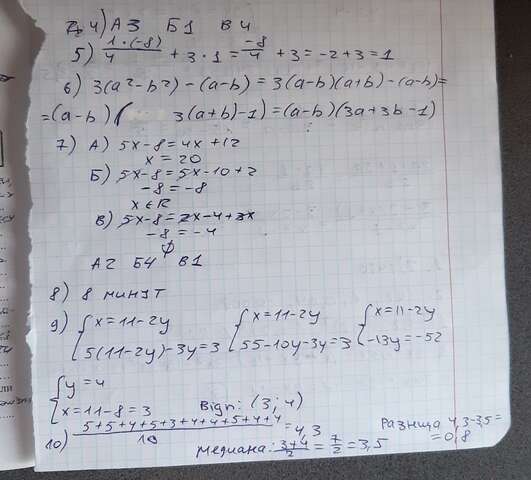 4) А3 Б1 В4
5) 1·(-8)/4 + 3·1 = -8/4 + 3 = -2+3 = 1
6) 3(a²-b²) - (a-b) = 3(a-b)(a+b) - (a-b) =
= (a-b)( 3(a+b)-1) = (a-b)(3a+3b-1)
7) А) 5x-8 = 4x+12
x = 20
Б) 5x-8 = 5x-10+2
-8 = -8
x ∈ R
В) 5x-8 = 2x-4+3x
-8 = -4
∅
А2 Б4 В1
8) 8 минут
9) {x = 11-2y {x = 11-2y {x = 11-2y
{5(11-2y)-3y = 3 {55-10y-3y = 3 {-13y = -52
{y = 4
{x = 11-8 = 3 Відп: (3; 4)
10) 5+5+4+5+3+4+4+5+4+4/10 = 4,3 Разница 4,3-3,5 =
медиана: 3+4/2 = 7/2 = 3,5 = 0,8